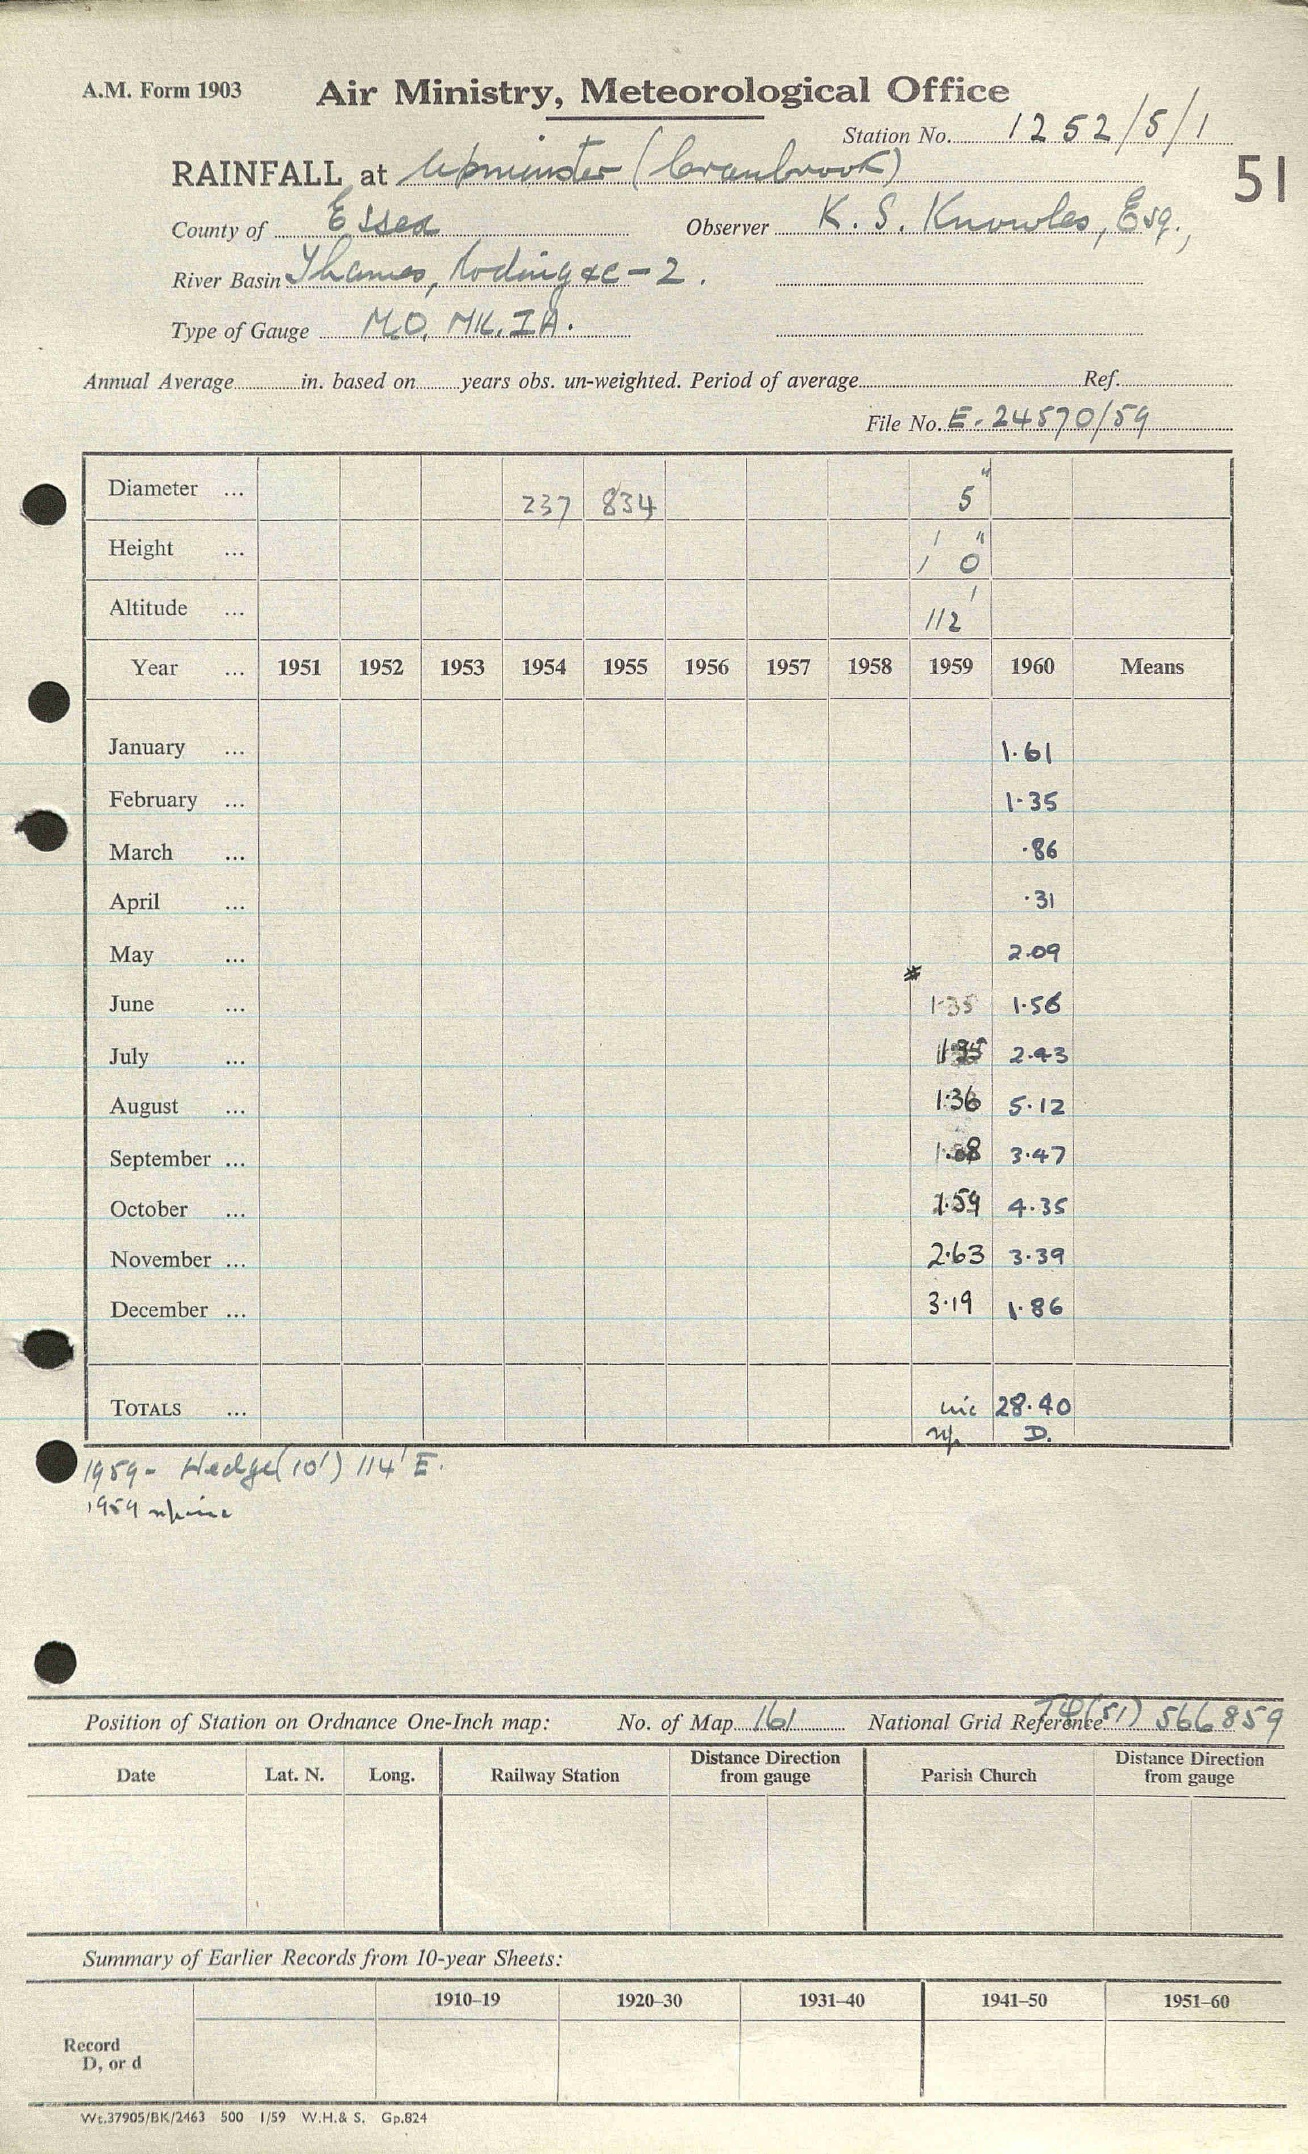 A.M. Form 1903 Air Ministry, Meteorological Office
Station No. 1252/5/1
51
RAINFALL at Upminster (Cranbrook)
County of Essex Observer K. S. Knowles, Esq.,
River Basin Thames, Roding &c - 2.
Type of Gauge M.O. MK. IA.
Annual Average in. based on years obs. un-weighted. Period of average Ref.
File No. E. 24570/59
Diameter ... 237 834 5"
Height ... 1' 0"
Altitude ... 112'
Year ... 1951 1952 1953 1954 1955 1956 1957 1958 1959 1960 Means
January ... 1.61
February ... 1.35
March ... .86
April ... .31
May ... 2.09
June ... 1.35 1.56
July ... 2.43
August ... 1.36 5.12
September ... 3.47
October ... 4.35
November ... 2.63 3.39
December ... 3.19 1.86
TOTALS ... inc 28.40
D.
1959 - Hedge (10') 114' E.
1959
Position of Station on Ordnance One-Inch map: No. of Map 161 National Grid Reference TQ(51) 566859
Date Lat. N. Long. Railway Station Distance Direction from gauge Parish Church Distance Direction from gauge
Summary of Earlier Records from 10-year Sheets:
1910–19 1920–30 1931–40 1941–50 1951–60
Record
D, or d
Wt.37905/BK/2463 500 1/59 W.H.& S. Gp.824